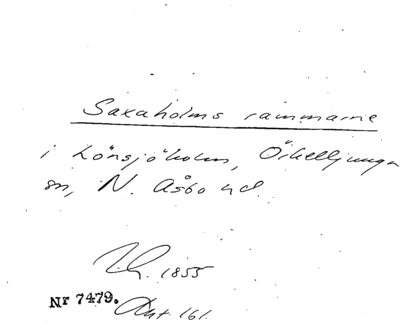 Saxaholms rammarne
i Lönsjöholm, Örkelljunga
sn, N. Åsbo hd.
1855
Nr 7479. Aut 161.